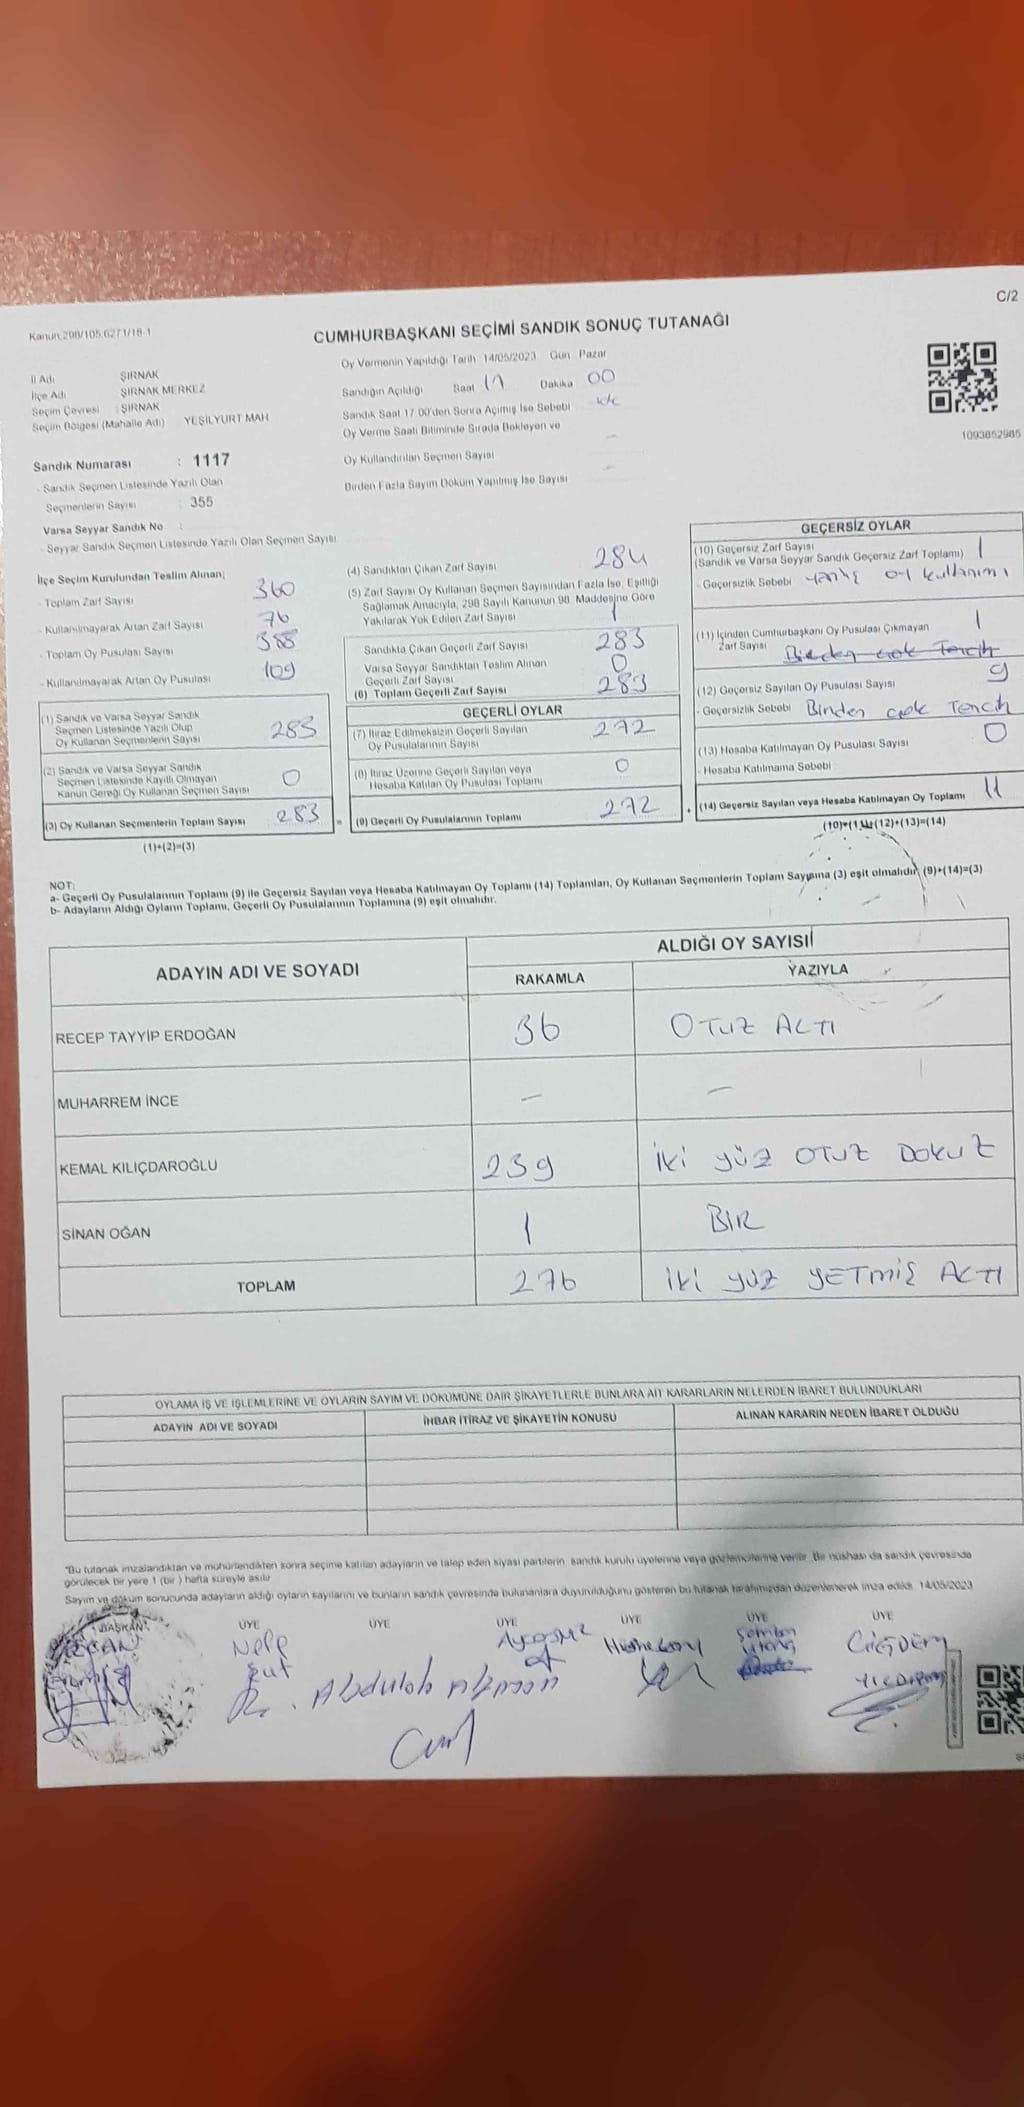 C/2
Kanun 298/105,6271/18-1
CUMHURBAŞKANI SEÇİMİ SANDIK SONUÇ TUTANAĞI
İl Adı : ŞIRNAK
İlçe Adı : ŞIRNAK MERKEZ
Seçim Çevresi : ŞIRNAK
Seçim Bölgesi (Mahalle Adı) YEŞİLYURT MAH
Oy Vermenin Yapıldığı Tarih 14/05/2023 Gün Pazar
Sandığın Açıldığı Saat 17 Dakika 00
Sandık Saat 17 00'den Sonra Açımış İse Sebebi
Oy Verme Saati Bitiminde Sırada Bekleyen ve
Oy Kullandırılan Seçmen Sayısı —
Birden Fazla Sayım Döküm Yapılmış İse Sayısı —
1093852985
Sandık Numarası : 1117
- Sandık Seçmen Listesinde Yazılı Olan
Seçmenlerin Sayısı : 355
Varsa Seyyar Sandık No :
- Seyyar Sandık Seçmen Listesinde Yazılı Olan Seçmen Sayısı
İlçe Seçim Kurulundan Teslim Alınan;
- Toplam Zarf Sayısı 360
- Kullanılmayarak Artan Zarf Sayısı 76
- Toplam Oy Pusulası Sayısı 388
- Kullanılmayarak Artan Oy Pusulası 109
(1) Sandık ve Varsa Seyyar Sandık
Seçmen Listesinde Yazılı Olup
Oy Kullanan Seçmenlerin Sayısı 283
(2) Sandık ve Varsa Seyyar Sandık
Seçmen Listesinde Kayıtlı Olmayan
Kanun Gereği Oy Kullanan Seçmen Sayısı 0
(3) Oy Kullanan Seçmenlerin Toplam Sayısı 283 =
(1)+(2)=(3)
(4) Sandıktan Çıkan Zarf Sayısı 284
(5) Zarf Sayısı Oy Kullanan Seçmen Sayısından Fazla İse, Eşitliği
Sağlamak Amacıyla, 298 Sayılı Kanunun 98. Maddesine Göre
Yakılarak Yok Edilen Zarf Sayısı 1
Sandıkta Çıkan Geçerli Zarf Sayısı 283
Varsa Seyyar Sandıktan Teslim Alınan
Geçerli Zarf Sayısı 0
(6) Toplam Geçerli Zarf Sayısı 283
GEÇERLİ OYLAR
(7) İtiraz Edilmeksizin Geçerli Sayılan
Oy Pusulalarının Sayısı 272
(8) İtiraz Üzerine Geçerli Sayılan veya
Hesaba Katılan Oy Pusulası Toplamı 0
(9) Geçerli Oy Pusulalarının Toplamı 272 +
GEÇERSİZ OYLAR
(10) Geçersiz Zarf Sayısı
(Sandık ve Varsa Seyyar Sandık Geçersiz Zarf Toplamı) 1
- Geçersizlik Sebebi yanlış oy kullanımı
(11) İçinden Cumhurbaşkanı Oy Pusulası Çıkmayan 1
Zarf Sayısı Birden çok Tercih
(12) Geçersiz Sayılan Oy Pusulası Sayısı 9
- Geçersizlik Sebebi Birden çok Tercih
(13) Hesaba Katılmayan Oy Pusulası Sayısı 0
- Hesaba Katılmama Sebebi :
(14) Geçersiz Sayılan veya Hesaba Katılmayan Oy Toplamı 11
(10)+(11)+(12)+(13)=(14)
NOT:
a- Geçerli Oy Pusulalarının Toplamı (9) ile Geçersiz Sayılan veya Hesaba Katılmayan Oy Toplamı (14) Toplamları, Oy Kullanan Seçmenlerin Toplam Sayısına (3) eşit olmalıdır (9)+(14)=(3)
b- Adayların Aldığı Oyların Toplamı, Geçerli Oy Pusulalarının Toplamına (9) eşit olmalıdır.
ADAYIN ADI VE SOYADI
ALDIĞI OY SAYISI
RAKAMLA YAZIYLA
RECEP TAYYİP ERDOĞAN 36 OTUZ ALTI
MUHARREM İNCE — —
KEMAL KILIÇDAROĞLU 239 İki yüz OTUZ DOKUZ
SİNAN OĞAN 1 BİR
TOPLAM 276 iki yüz YETMİŞ ALTI
OYLAMA İŞ VE İŞLEMLERİNE VE OYLARIN SAYIM VE DÖKÜMÜNE DAİR ŞİKAYETLERLE BUNLARA AİT KARARLARIN NELERDEN İBARET BULUNDUKLARI
ADAYIN ADI VE SOYADI İHBAR İTİRAZ VE ŞİKAYETİN KONUSU ALINAN KARARIN NEDEN İBARET OLDUĞU
"Bu tutanak imzalandıktan ve mühürlendikten sonra seçime katılan adayların ve talep eden siyasi partilerin sandık kurulu üyelerine veya gözlemcilerine verilir. Bir nüshası da sandık çevresinde
görülecek bir yere 1 (bir ) hafta süreyle asılır
Sayım ve döküm sonucunda adayların aldığı oyların sayılarını ve bunların sandık çevresinde bulunanlara duyurulduğunu gösteren bu tutanak tarafımızdan düzenlenerek imza edildi. 14/05/2023
BAŞKAN ÜYE ÜYE ÜYE ÜYE ÜYE ÜYE
ÇİĞDEM
YILDIRIM